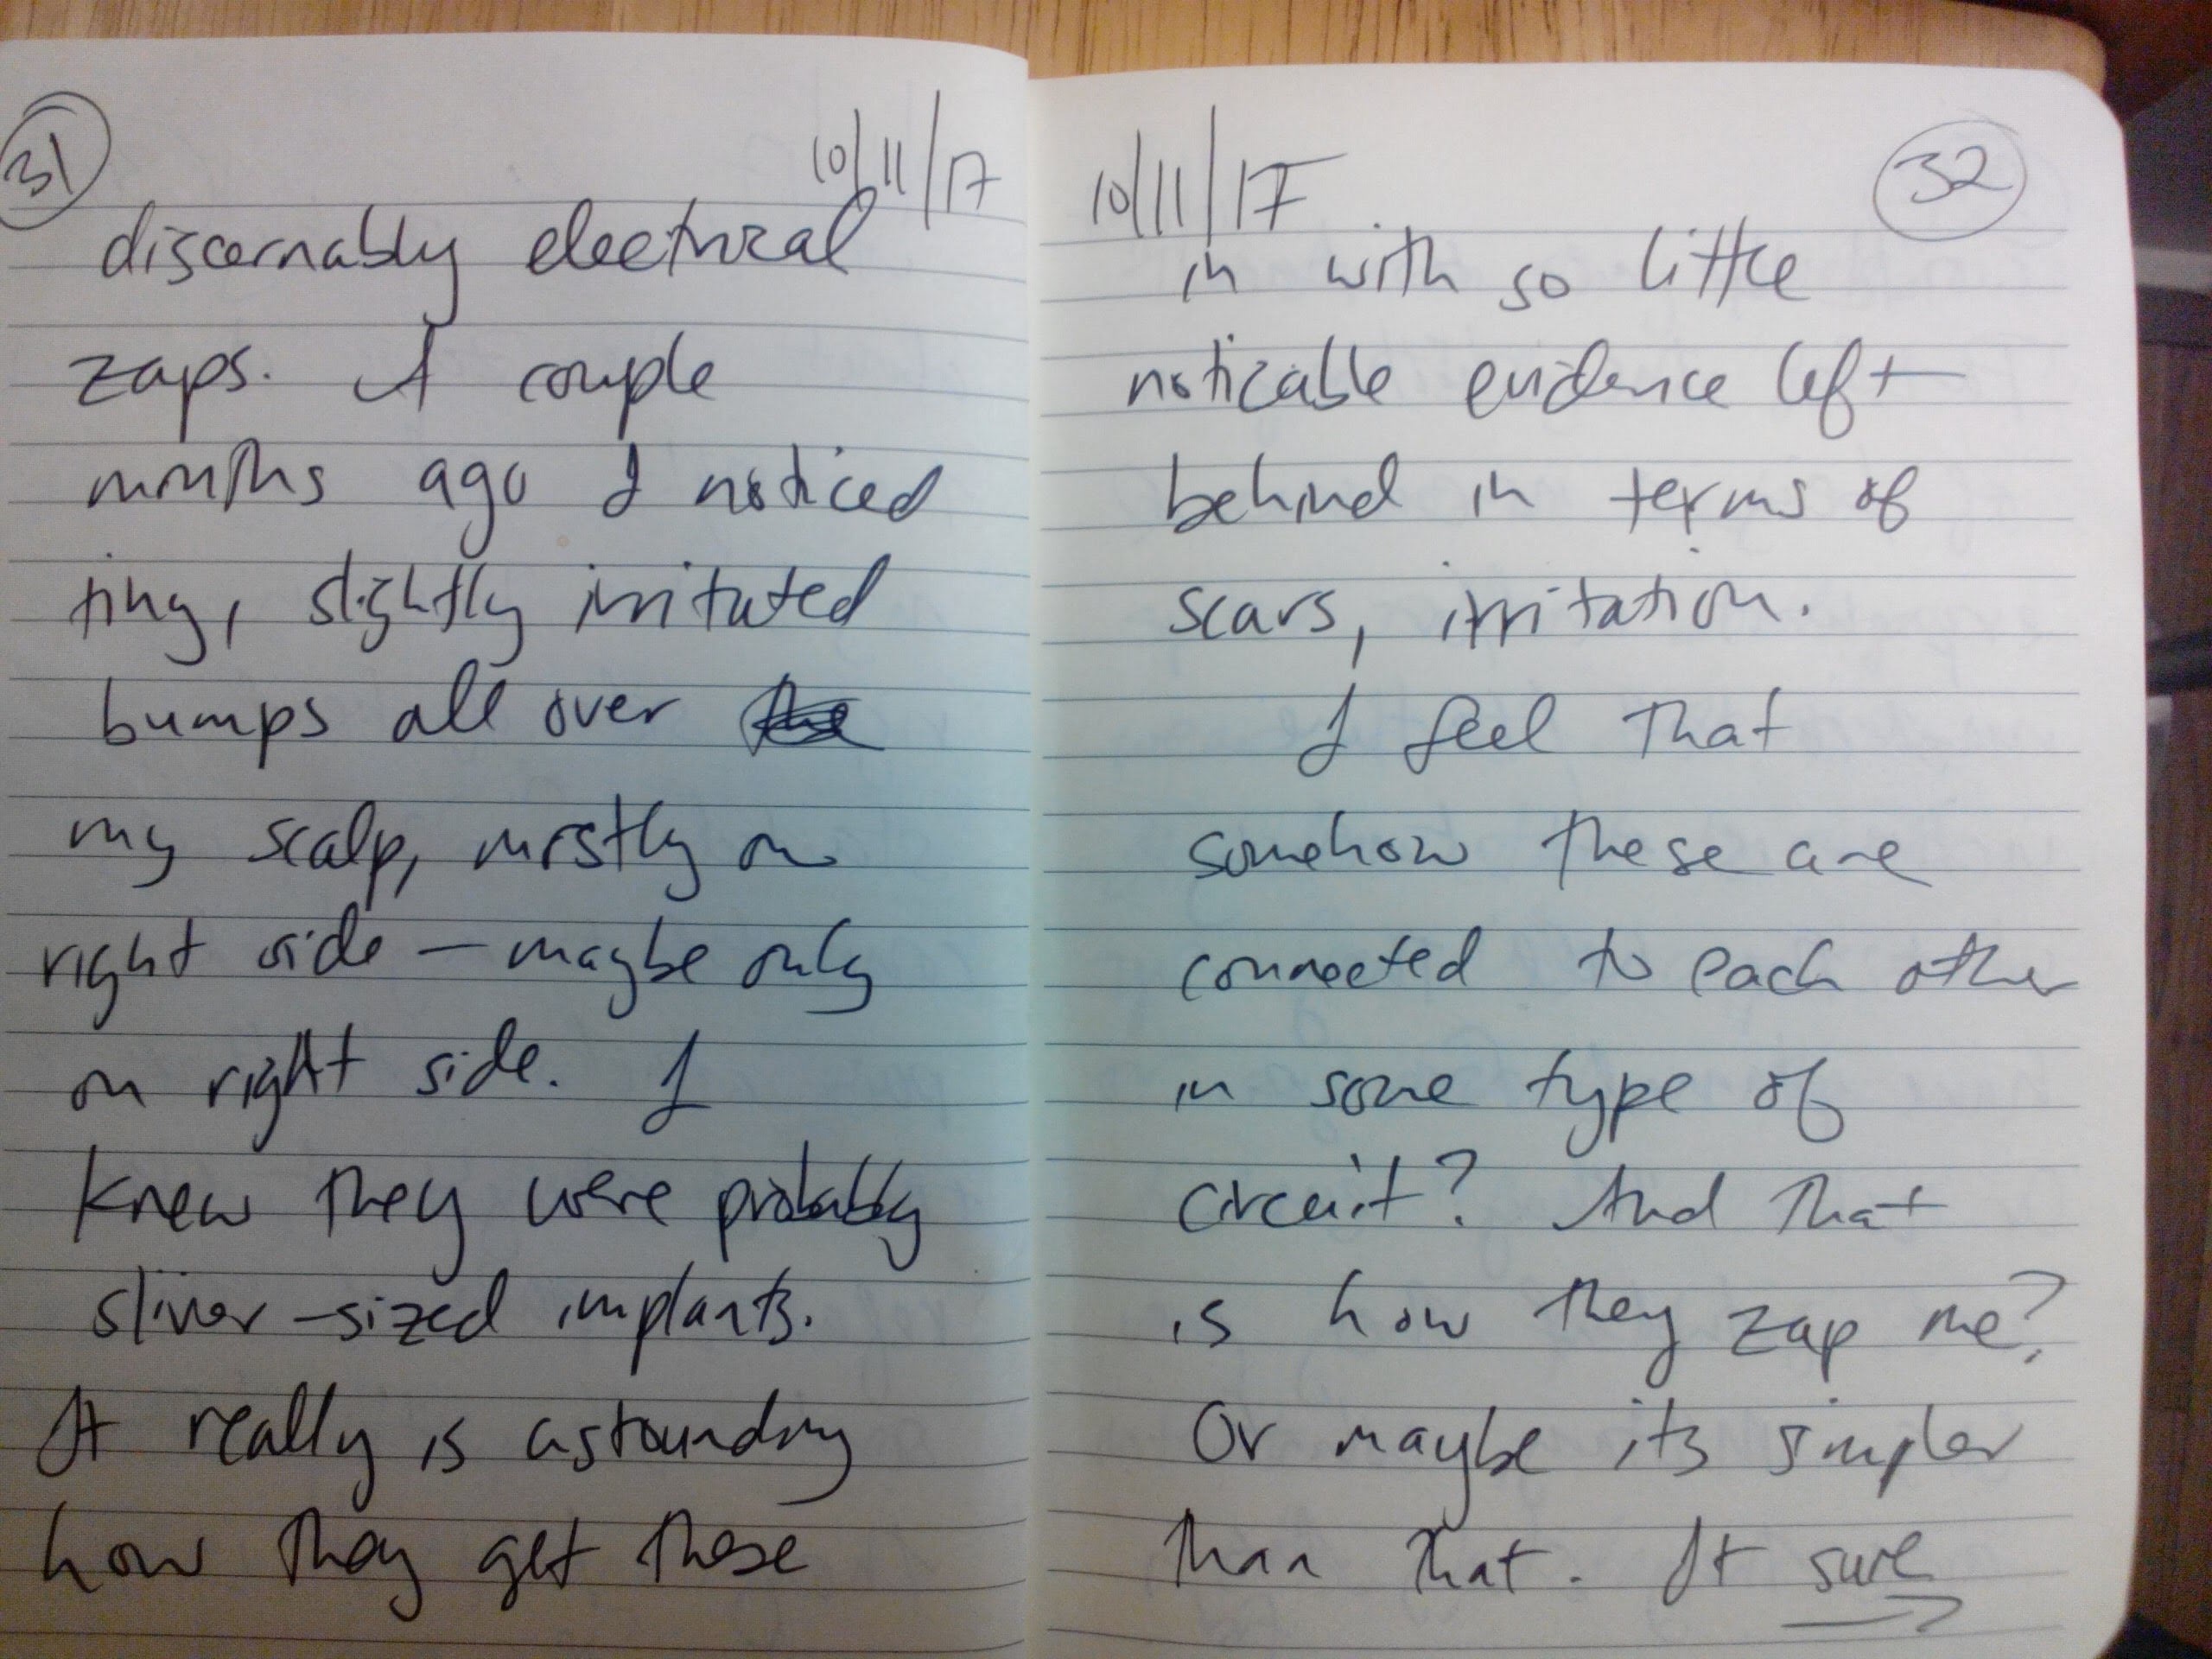 31
10/11/17
discernably electrical
zaps. A couple
months ago I noticed
tiny, slightly irritated
bumps all over the
my scalp, mostly on
right side — maybe only
on right side. I
knew they were probably
sliver-sized implants.
It really is astounding
how they get these
10/11/17
32
in with so little
noticable evidence left
behind in terms of
scars, irritation.
I feel that
somehow these are
connected to each other
in some type of
circuit? And that
is how they zap me?
Or maybe its simpler
than that. It sure